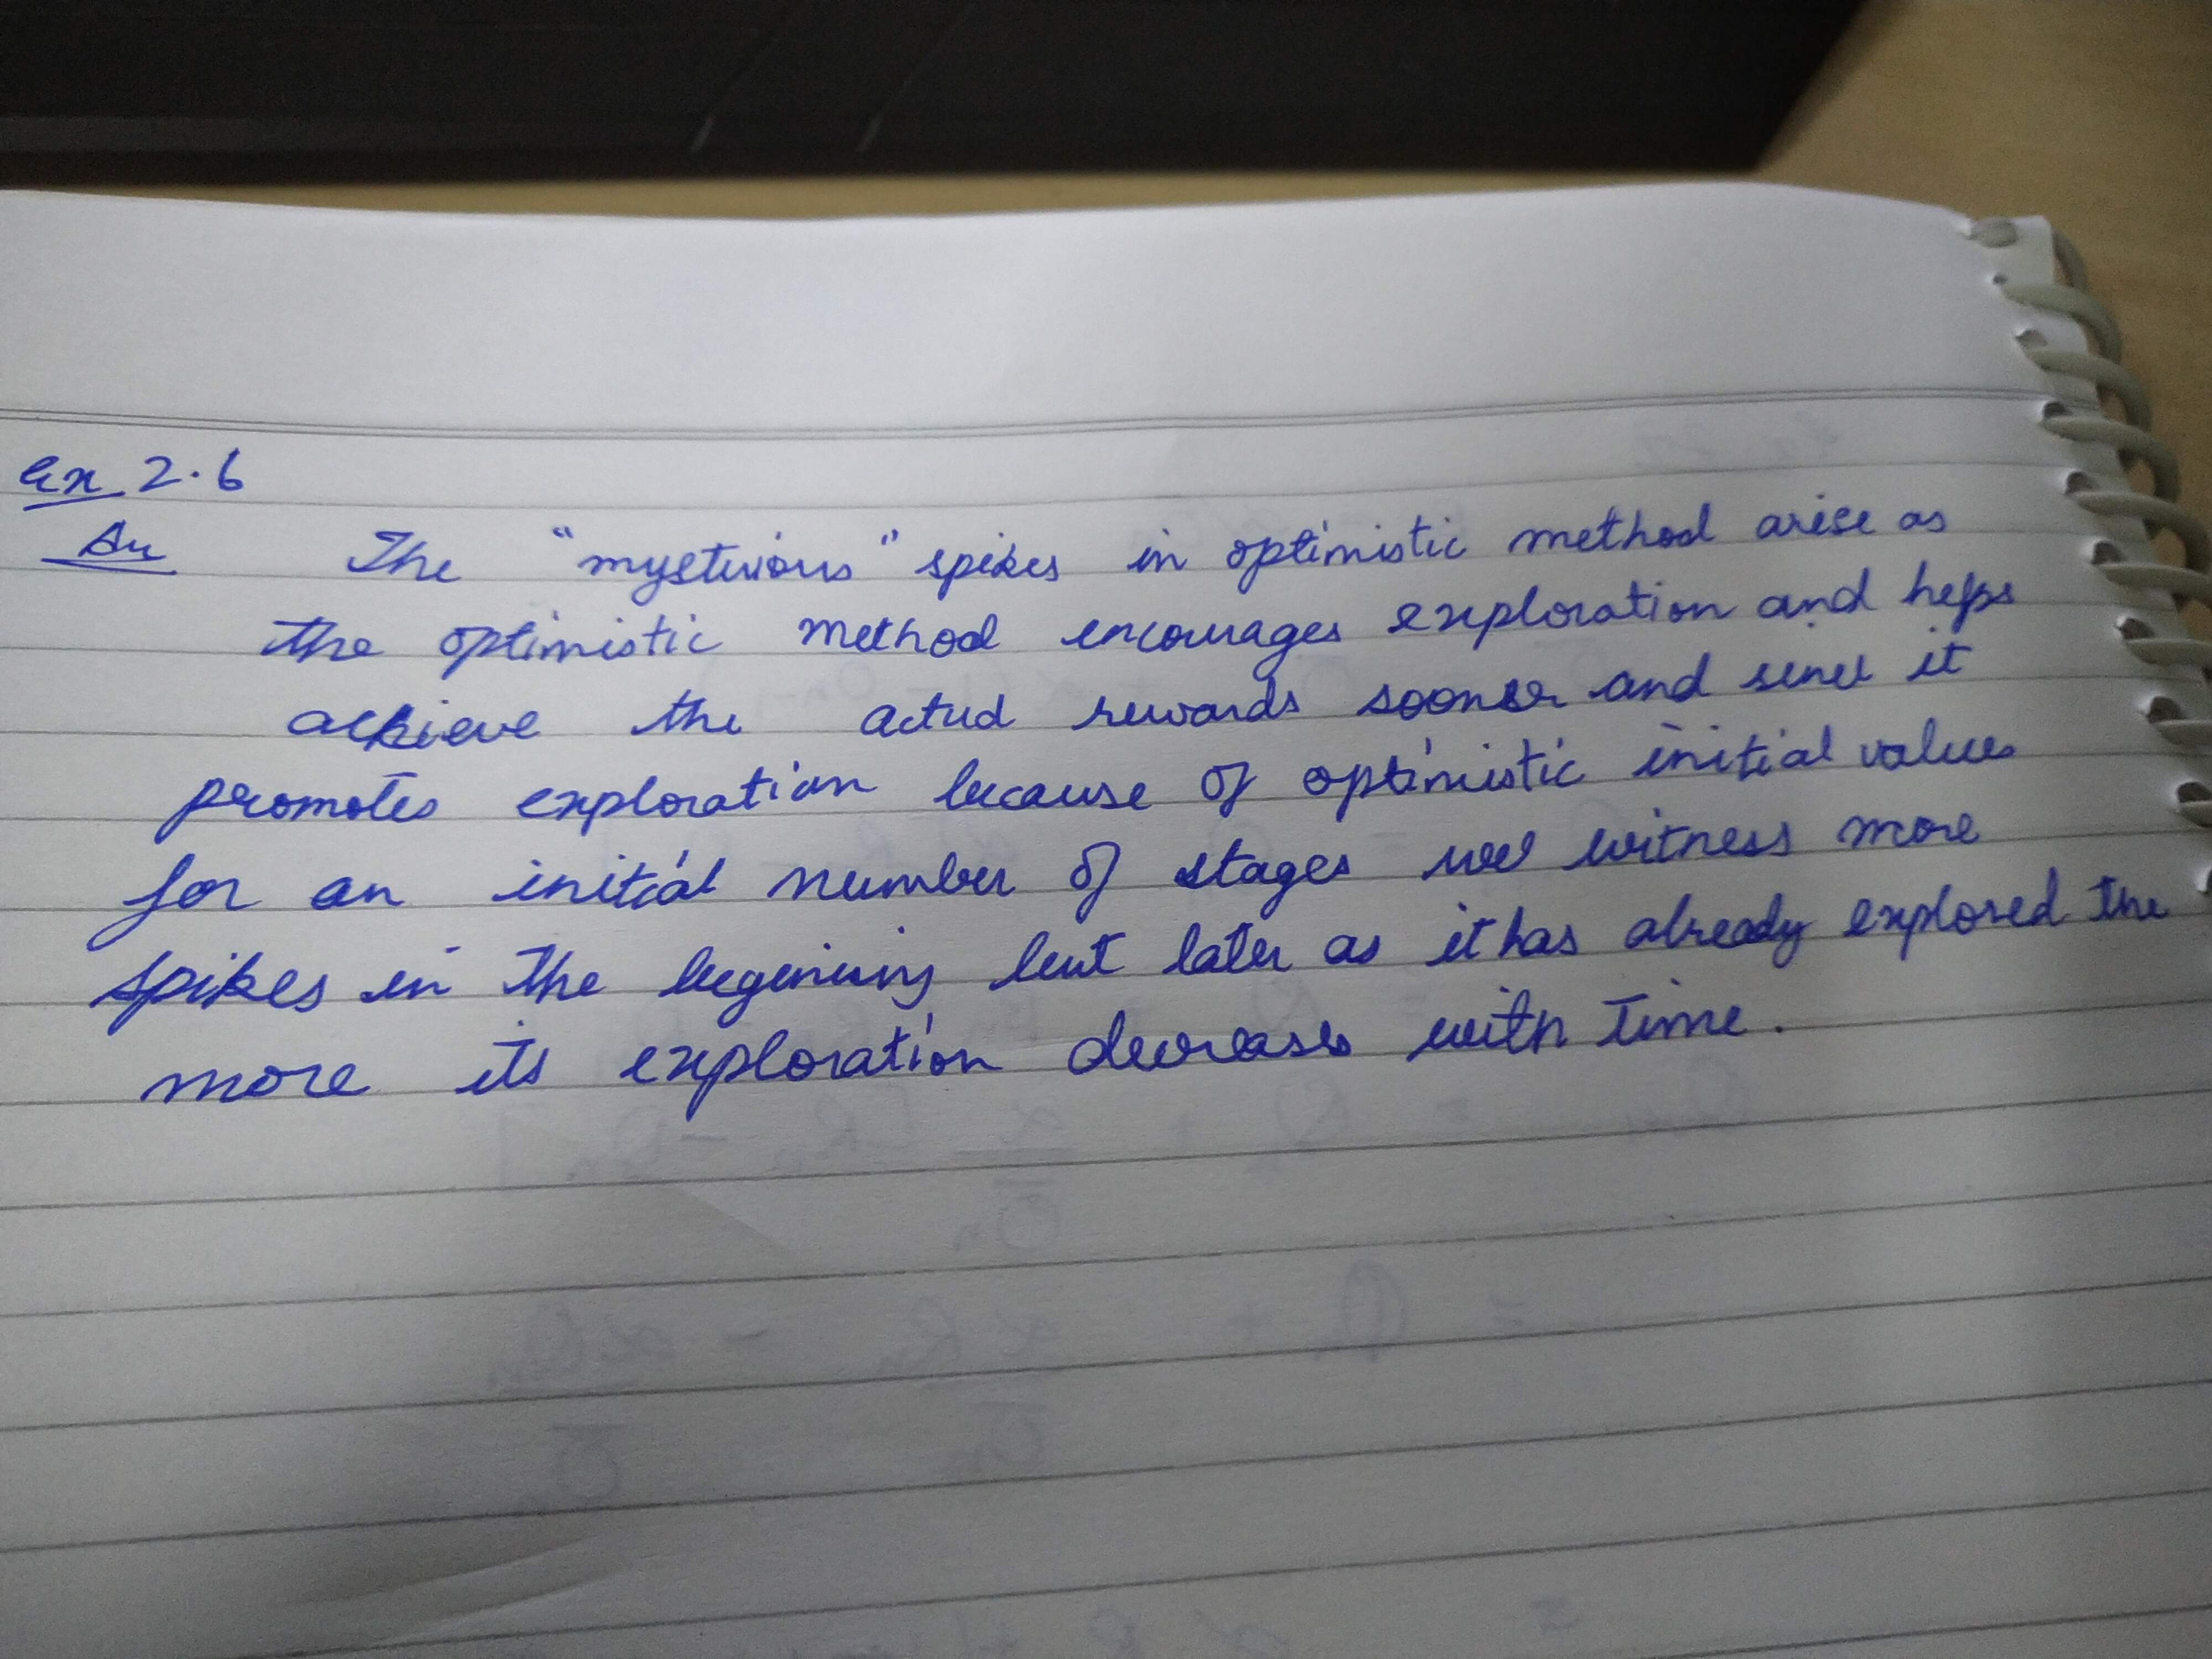 Ex 2.6
Ans The "mysterious" spikes in optimistic method arise as
the optimistic method encourages exploration and helps
achieve the actual rewards sooner and since it
promotes exploration because of optimistic initial values
for an initial number of stages we witness more
spikes in the begining but later as it has already explored the
more its exploration decreases with time.